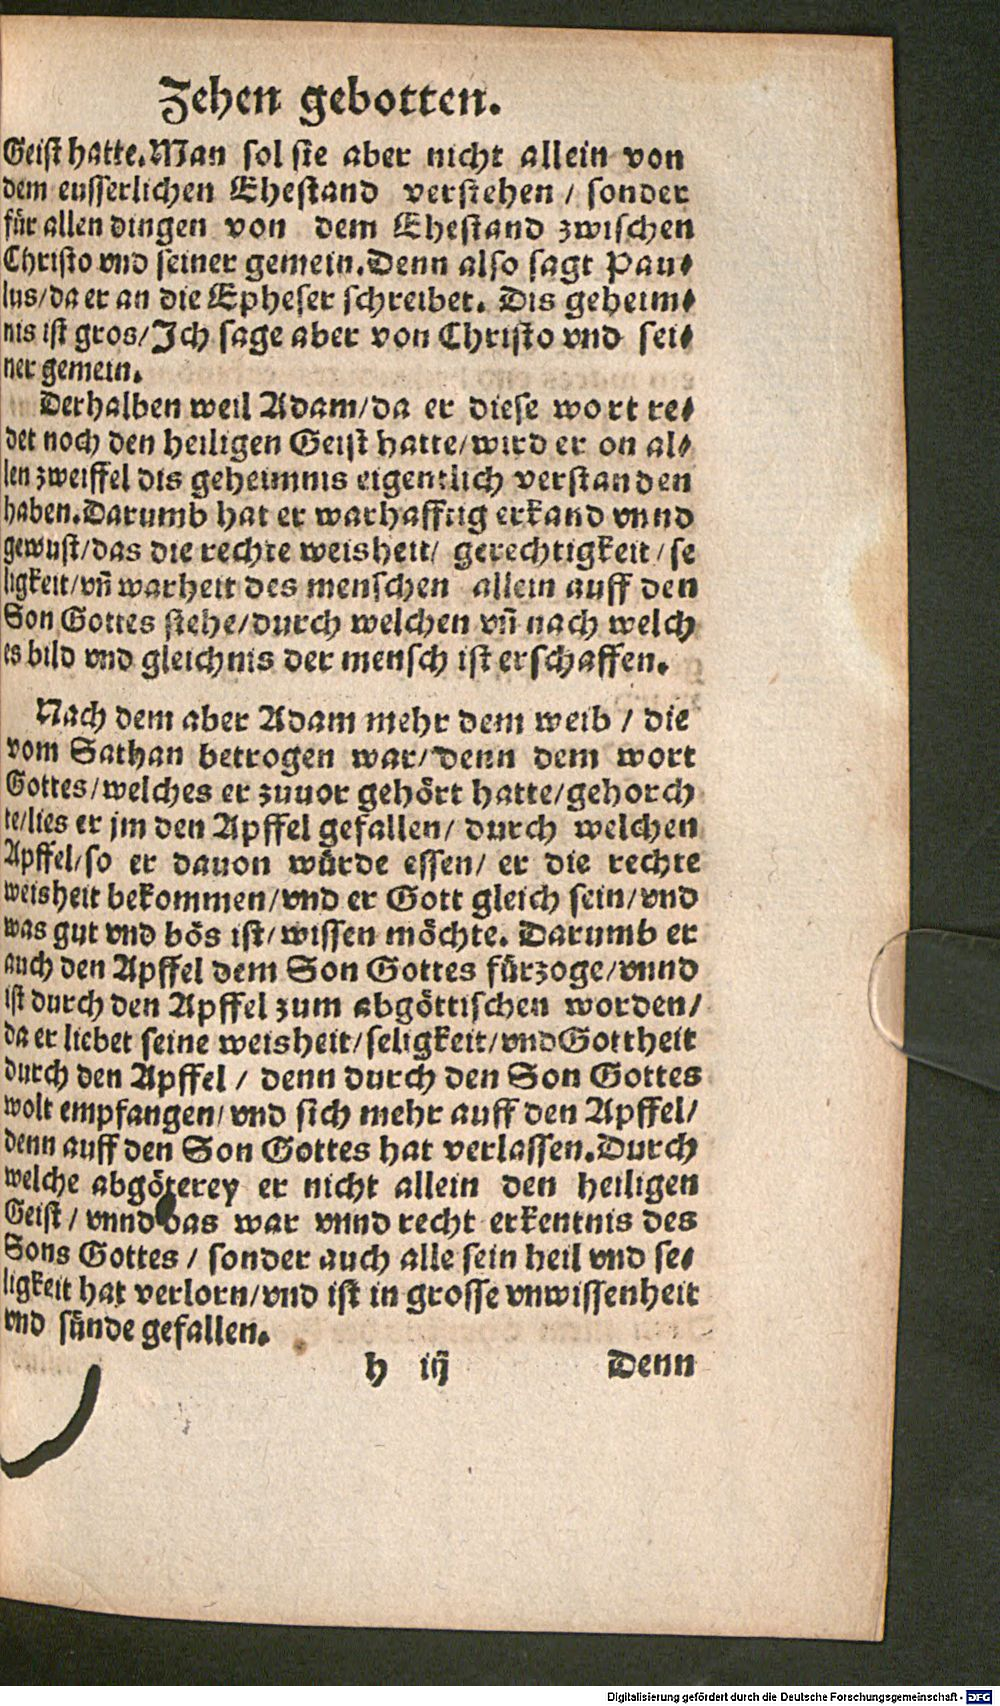 Zehen gebotten.
Geist hatte. Man sol sie aber nicht allein von
dem eusserlichen Ehestand verstehen / sonder
für allen dingen von dem Ehestand zwischen
Christo vnd seiner gemein. Denn also sagt Pau⸗
lus/da er an die Epheser schreibet. Dis geheim⸗
nis ist gros/Ich sage aber von Christo vnd sei⸗
ner gemein.
Derhalben weil Adam/da er diese wort re⸗
det noch den heiligen Geist hatte/wird er on al⸗
len zweiffel dis geheimnis eigentlich verstanden
haben. Darumb hat er warhafftig erkand vnnd
gewust/das die rechte weisheit/ gerechtigkeit/se
ligkeit/vn̄ warheit des menschen allein auff den
Son Gottes stehe/durch welchen vn̄ nach welch
es bild vnd gleichnis der mensch ist erschaffen.
Nach dem aber Adam mehr dem weib / die
vom Sathan betrogen war/denn dem wort
Gottes/welches er zuuor gehört hatte/gehorch
te/lies er jm den Apffel gefallen/ durch welchen
Apffel/so er dauon würde essen/ er die rechte
weisheit bekommen/vnd er Gott gleich sein/vnd
was gut vnd bös ist/wissen möchte. Darumb er
auch den Apffel dem Son Gottes fürzoge/vnnd
ist durch den Apffel zum abgöttischen worden/
da er liebet seine weisheit/seligkeit/vnd Gottheit
durch den Apffel / denn durch den Son Gottes
wolt empfangen/vnd sich mehr auff den Apffel/
denn auff den Son Gottes hat verlassen. Durch
welche abgöterey er nicht allein den heiligen
Geist / vnnd das war vnnd recht erkentnis des
Sons Gottes / sonder auch alle sein heil vnd se⸗
ligkeit hat verlorn/vnd ist in grosse vnwissenheit
vnd sünde gefallen.
h iij Denn
Digitalisierung gefördert durch die Deutsche Forschungsgemeinschaft - DFG